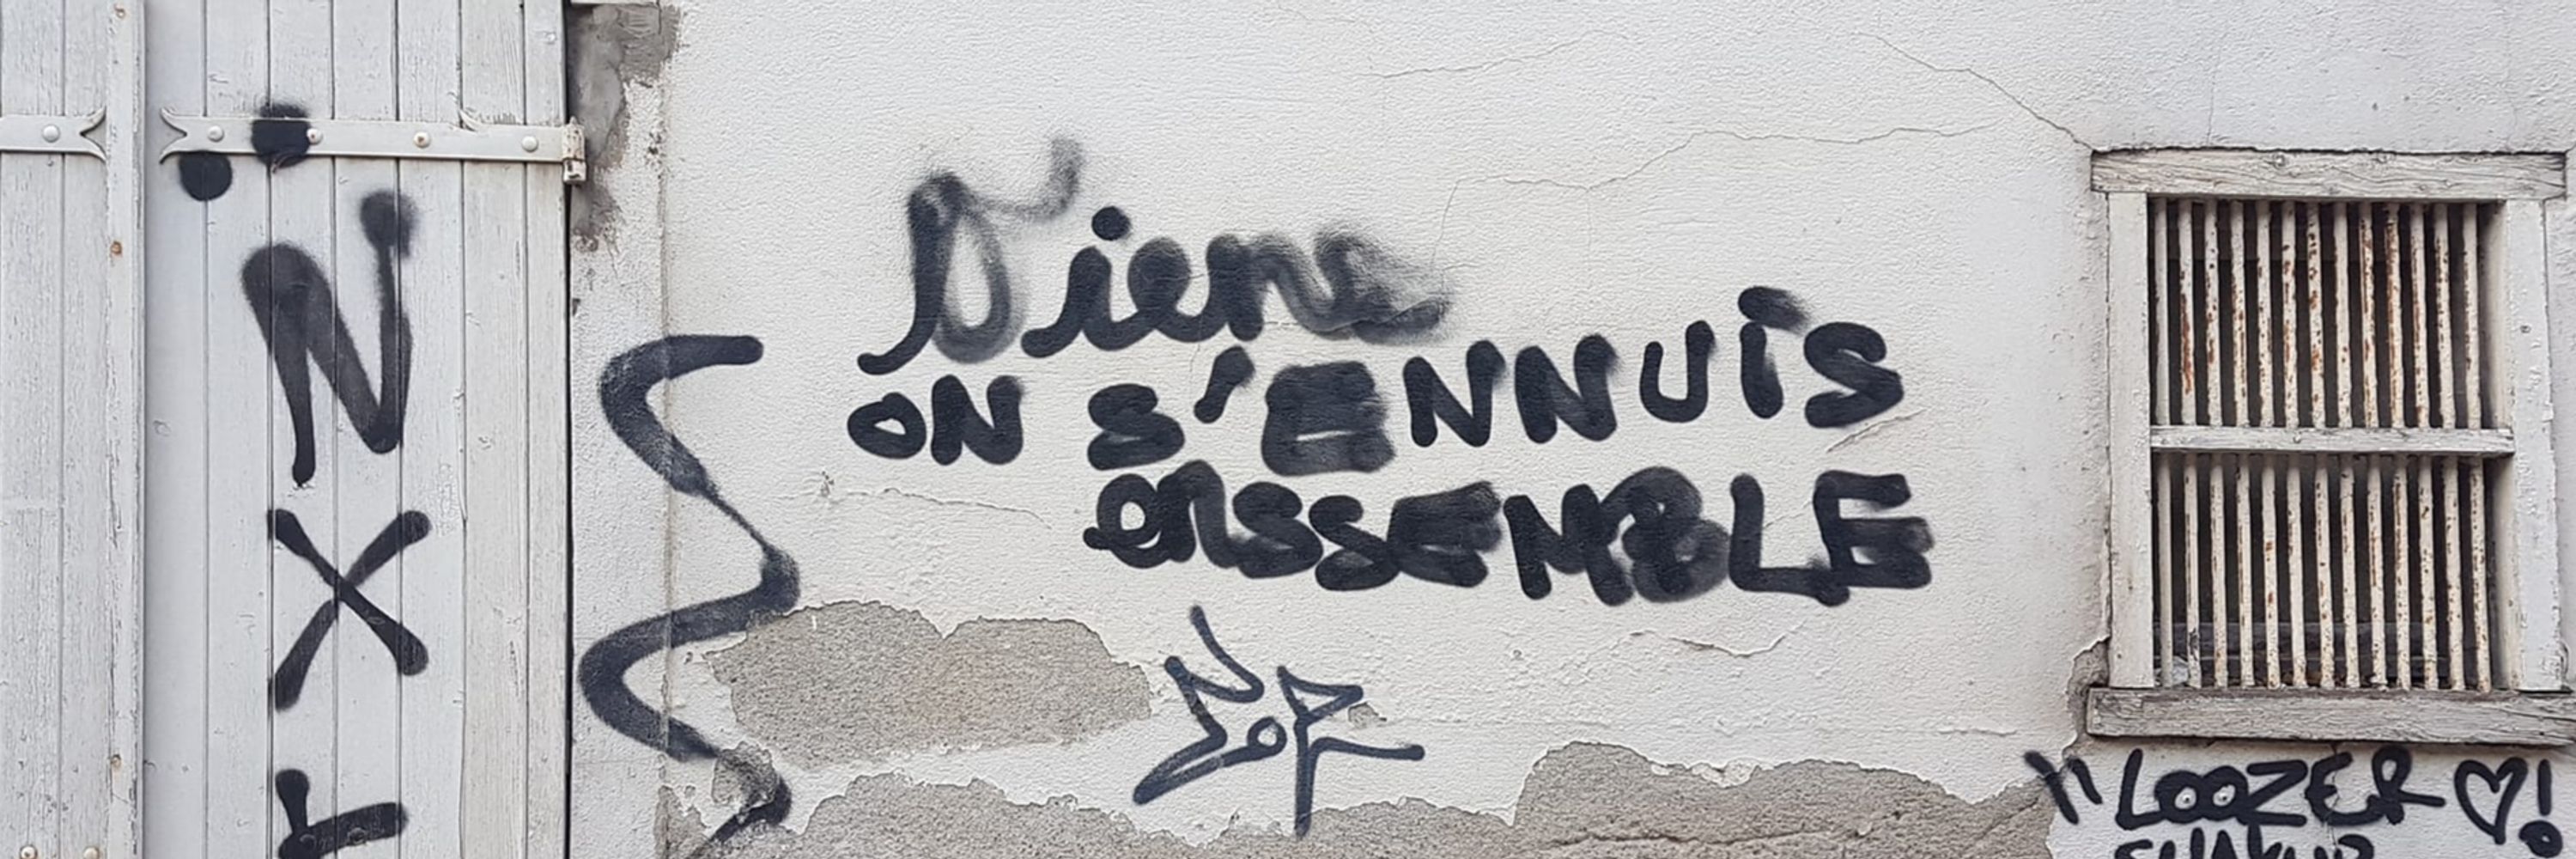 Viens
ON S'ENNUIS
ENSSEMBLE
NX
"LOOZER ♡!